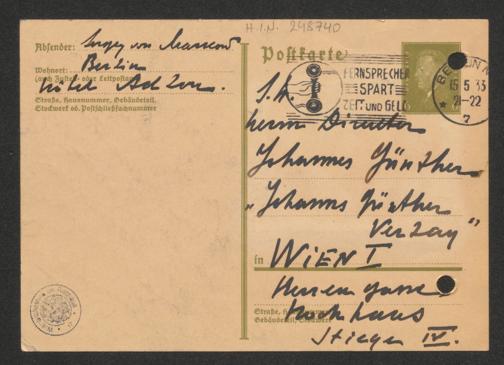 H.I.N. 248740
Absender: Sergey von
Wohnort: Berlin
(auch Zustell- oder Leitpostamt)
Hotel Adlon.
Straße, Hausnummer, Gebäudeteil,
Stockwerk od. Postschließfachnummer
Postkarte
FERNSPRECHER
SPART
ZEIT UND GELD
BERLIN N
15 5 33
21-22
7
S.H.
Herrn Direktor
Johannes Günther
"Johannes Günther
Verlag"
in WIEN I
Herrengasse
Hochhaus
Straße,
Gebäudeteil, Stockwerk
Stiege IV.